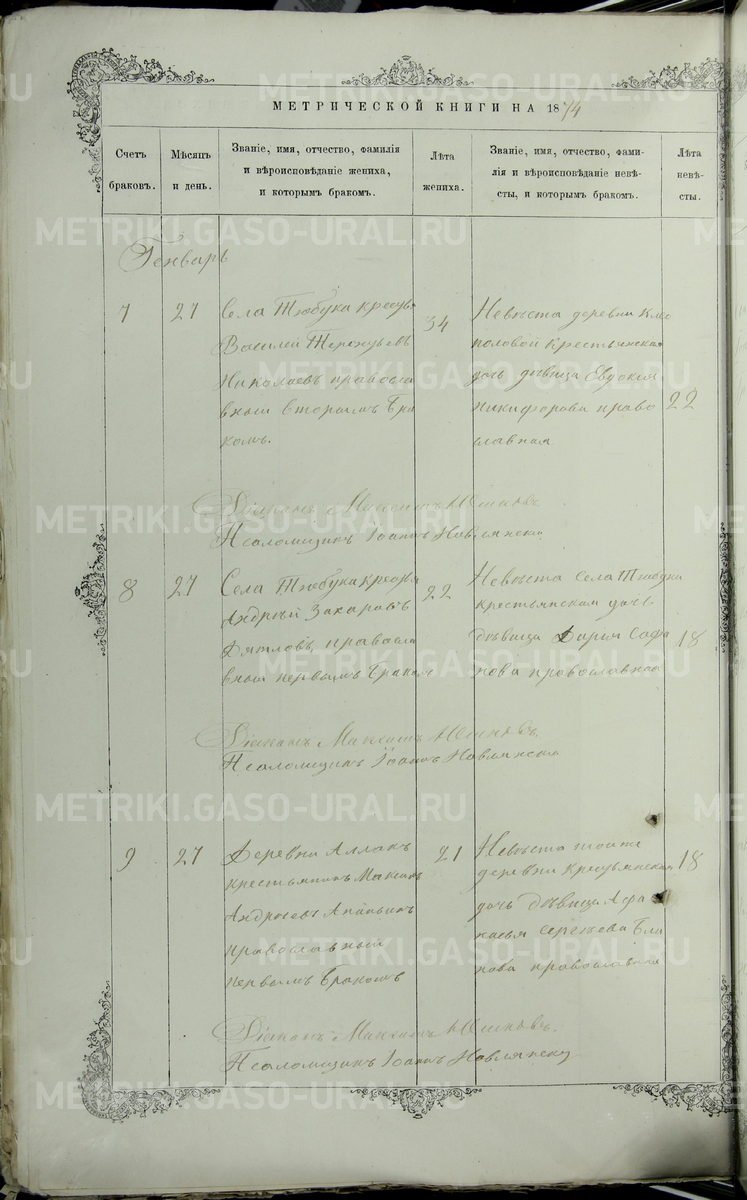 МЕТРИЧЕСКОЙ КНИГИ НА 1874
Счетъ
браковъ.
Мѣсяцъ
и день.
Званіе, имя, отчество, фамилія
и вѣроисповѣданіе жениха,
и которымъ бракомъ.
Лѣта
жениха.
Званіе, имя, отчество, фами-
лія и вѣроисповѣданіе невѣ-
сты, и которымъ бракомъ.
Лѣта
невѣ-
сты.
Генварь
7
27
Села Тюбука
Василий Терентьевъ
Николаевъ правосла
вный вторымъ бра
комъ.
34
Невѣста деревни
половой крестьянская
дочь дѣвица Евдокия
Никифорова право
славная
22
Діаконъ Максимъ
Псаломщикъ Іоаннъ
8
27
Села Тюбука
Андрей Захаровъ
Дятловъ, правосла
вный первымъ бракомъ
22
Невѣста села Тюбука
крестьянская дочь
дѣвица Дарья Сафо
нова православная
18
Діаконъ Максимъ
Псаломщикъ Іоаннъ
9
27
Деревни Аллакъ
крестьянинъ Максимъ
Андреевъ Ананьинъ
православный
первымъ бракомъ
21
Невѣста тоиже
деревни крестьянская
дочь дѣвица Афа
насья Сергѣева Бла
нова православная
18
Діаконъ Максимъ
Псаломщикъ Іоаннъ
METRIKI.GASO-URAL.RU